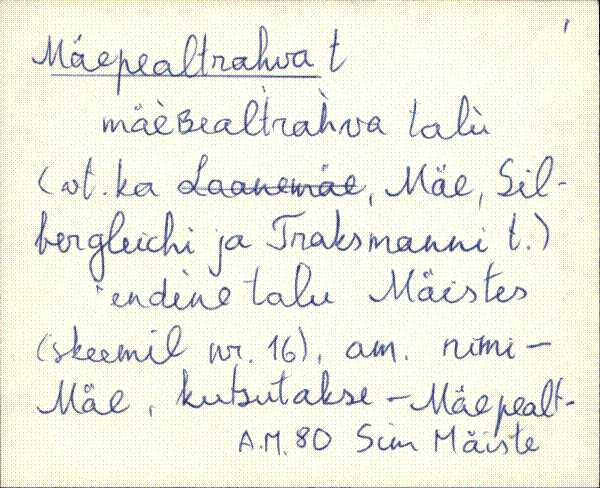 Mäepealtrahva t
mäèʙealt̀rah̀va talù
(vt. ka ~~Laanemäe~~, Mäe, Sil-
bergleichi ja Traksmanni t.)
endìne talu Mäistes
(skeemil nr. 16), am. nimi –
Mäe, kutsutakse – Mäepealt-
A.M. 80 Siim Mäiste